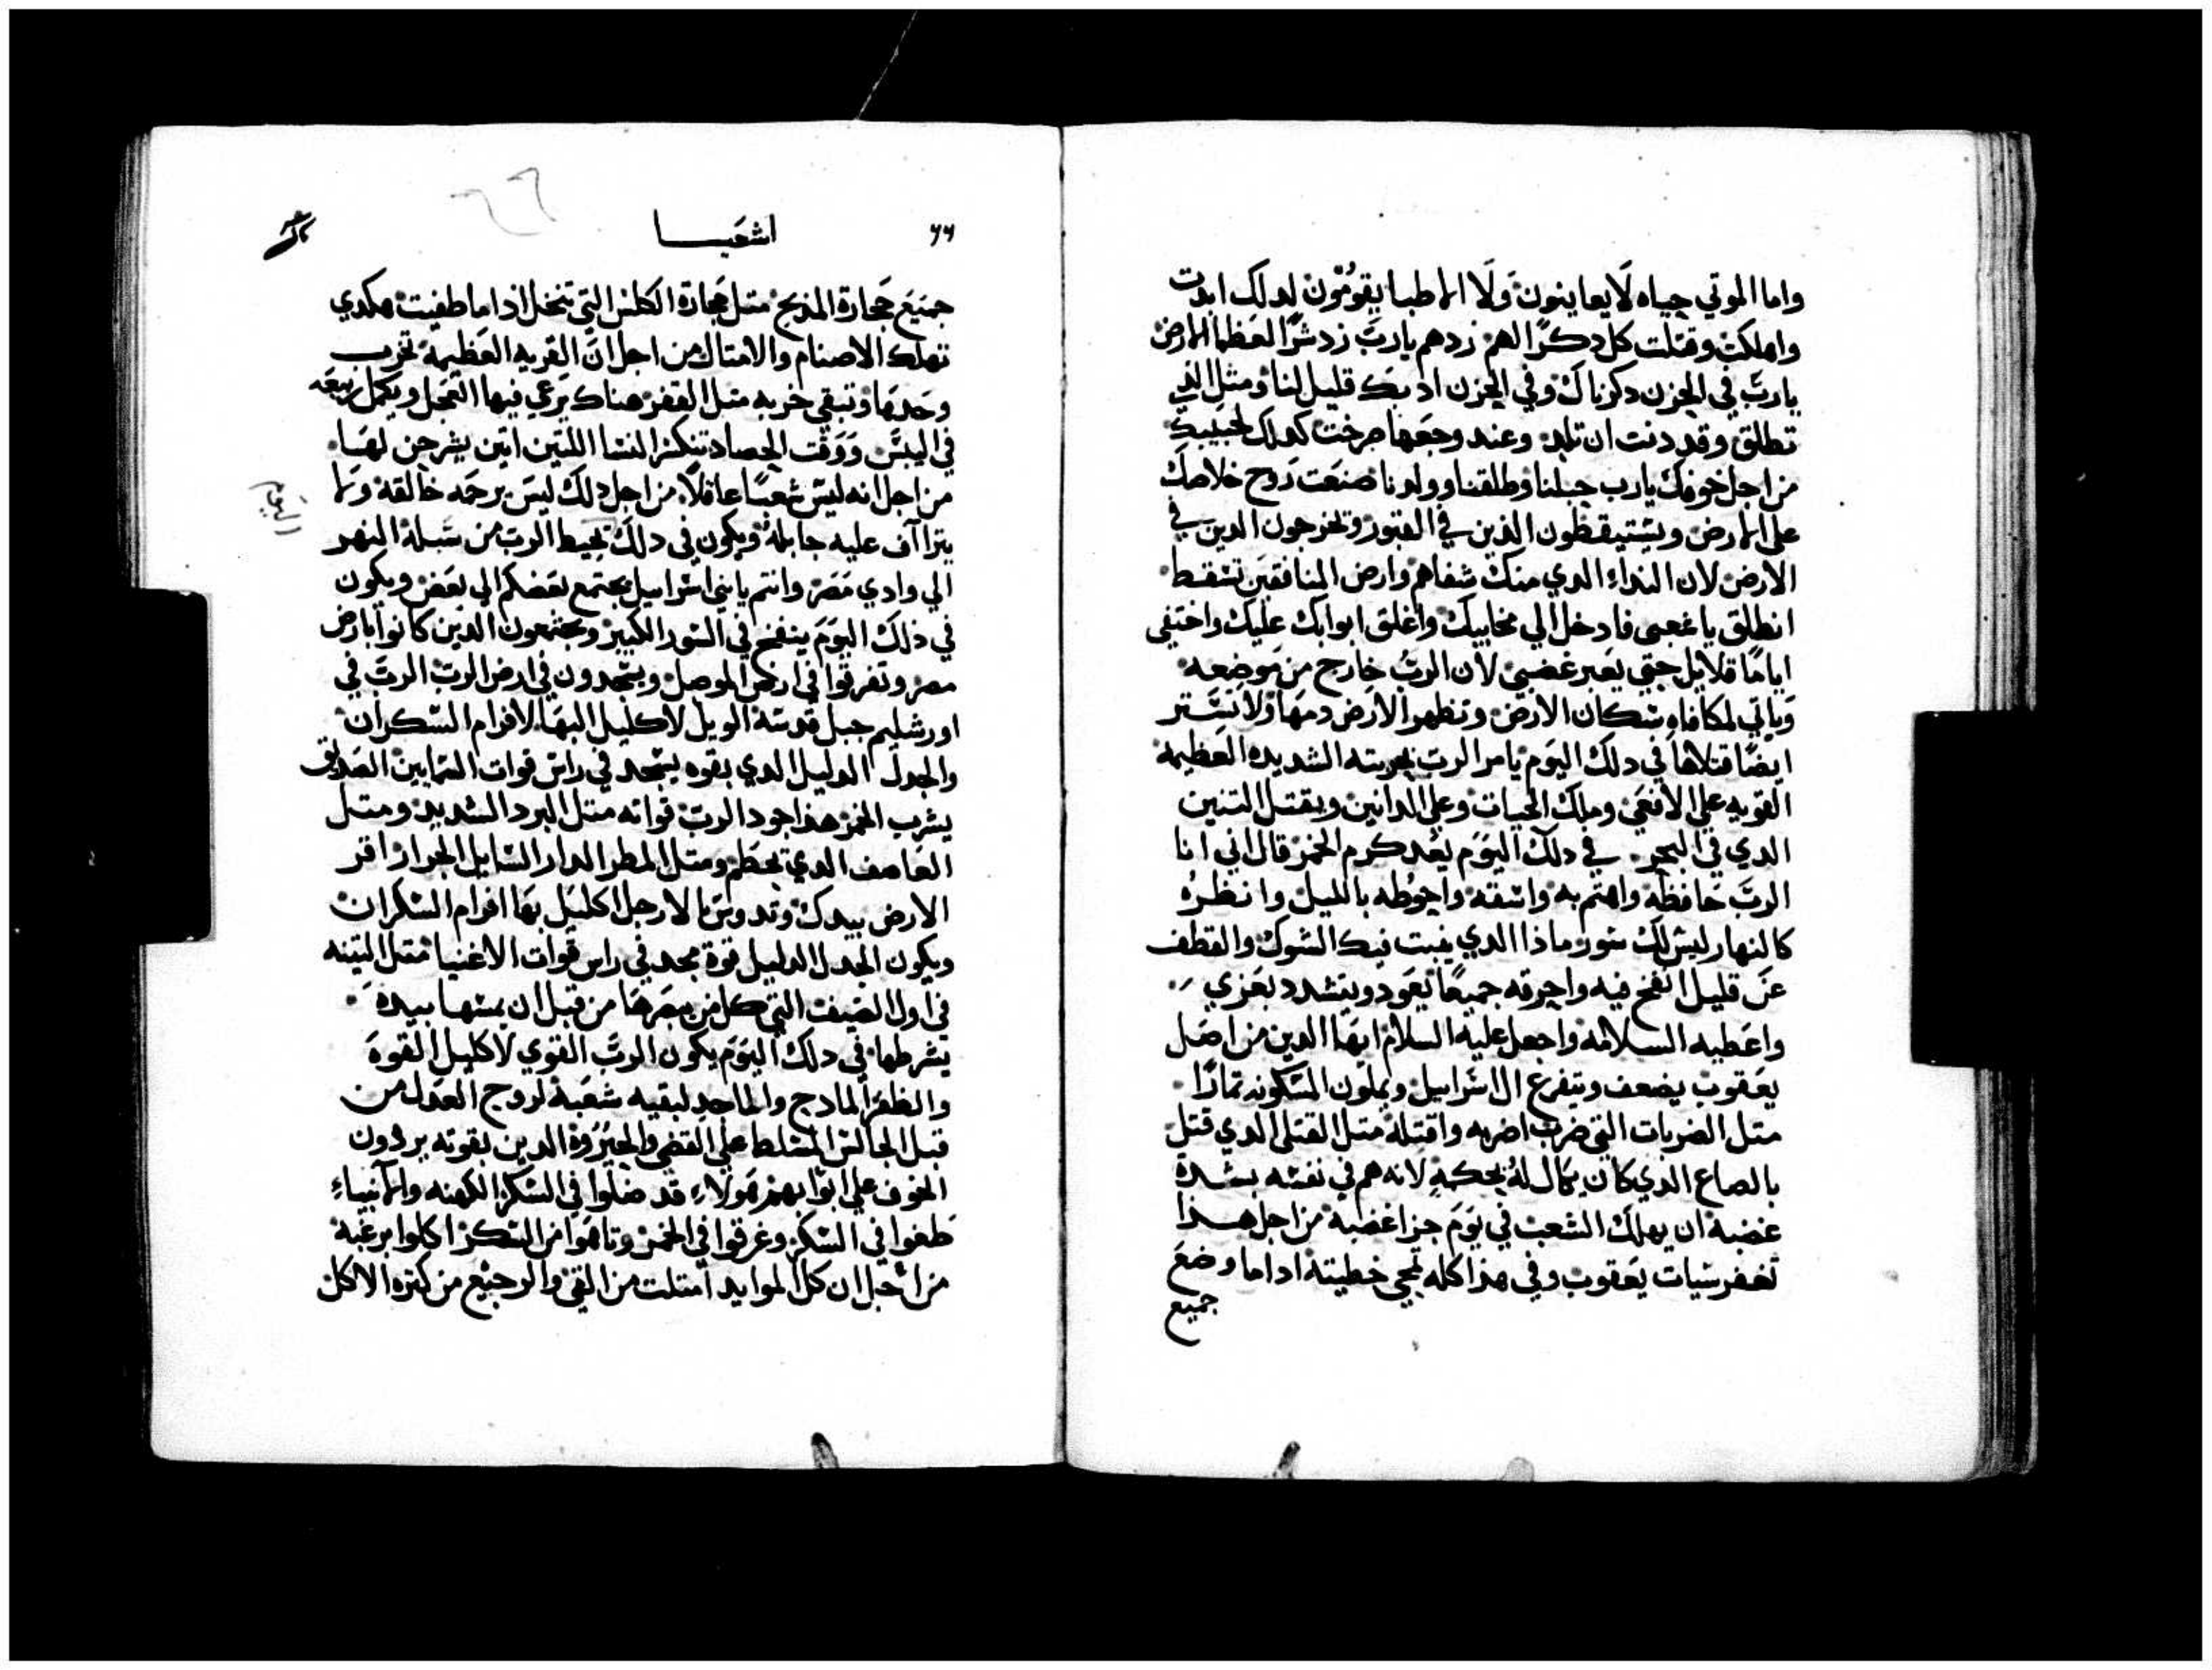 واما الموتي حياه لا يعاينون ولا الاطبا يقومون لدلك ابدت
واهلكت وقتلت كل دكرا لهم زدهم يارب زد شرا لعظما الارض
يارب في الحزن دكرناك وفي الحزن ادبك قليل لنا ومثل التي
تطلق وقد دنت ان تلد وعند وجعها صرخت كدلك لحبيبك
من اجل خوفك يارب حبلنا وطلقنا وولدنا صنعت روح خلاصك
علي الارض ويستيقظون الذين في القبور وتخرجون الدين في
الارض لان النداء الدي منك شفاهم وارض المنافقين تسقط
انطلق يا شعبي فادخل الي مخابيك واغلق ابوابك عليك واختفي
اياما قلايل حتي يعبر غضبي لان الرب خارج من موضعه
وياتي لمكافاه سكان الارض وتظهر الارض دمها ولا تستتر
ايضا قتلاها في دلك اليوم يامر الرب بحربته الشديده العظيمه
القويه علي الافعي وملك الحيات وعلي الدانين ويقتل التنين
الدي في البحر في دلك اليوم يعد كرم الخمر قال اني انا
الرب حافظه واهتم به واسقه واحوطه بالليل وانظره
كالنهار ليس لك سور ماذا الدي ينبت فيك الشوك والقطف
عن قليل انفخ فيه واحرقه جميعا يعود ويتشدد بعزي
واعطيه السلامه واجعل عليه السلام ايها الدين من اصل
يعقوب يضعف ويتفرع ال اسراييل ويملون المسكونه تمارا
متل الضربات التي ضرب اضربه واقتله متل القتلي الدي قتل
بالصاع الدي كان يكال له بحكمه لانه هم في نفسه بشده
غضبه ان يهلك الشعب في يوم جزا غضبه من اجل هذا
تغفر سيات يعقوب وفي هذا كله تمحي خطيته اداما وضع
جميع
٦٦ اشعيا
جميع حجارة المذبح متل حجارة الكلس التي تنخل اذا ما طفيت هكدي
تهلك الاصنام والامتال من اجل ان القريه العظيمه تخرب
وحدها وتبقي خربه متل القفر هناك يرعي فيها العجل ويكمل ربيعه
في اليبس ووقت الحصاد تنكسر النسا اللتين اتين يشرحن لها
من اجل انه ليس شعبا عاقلا من اجل دلك ليس يرحمه خالقه ولا
يتراآف عليه جابله ويكون في دلك يحيط الرب من سبلة النهر
الي وادي مصر وانتم يا بني اسراييل يجتمع بعضكم الي بعض ويكون
في ذلك اليوم ينفخ في السور الكبير ويجتمعون الدين كانوا بارض
مصر وتفرقوا في ارض الموصل ويسجدون في ارض الرب الرب في
اورشليم جبل قدسه الويل لاكليل البها لافرام السكران
والجدل الدليل الدي بقوه يسجد في راس قوات السمايين الصديق
يشرب الخمر هذا جود الرب قواته متل البرد الشديد ومتل
العاصف الدي تحطم ومتل المطر المدار السايل الجرار اقر
الارض بيدك وتدوس بالارجل اكليل بها افرام السكران
ويكون الجدل الدليل قوة مجد في راس قوات الاغنيا متل التينه
في اول الصيف التي كل من يبصرها من قبل ان يمسها بيده
يشرطها في دلك اليوم يكون الرب القوي لاكليل القوة
والظفر المادح والماجد لبقيه شعبه لروح العدل من
قبل الجالس المسلط علي القضي والجبروة الدين بقوته يردون
الخوف علي ابوابهم هولاء قد ضلوا في السكر الكهنه والانبياء
طغوا في السكر وغرقوا في الخمر وتاهوا من السكر اكلوا برغبه
من اجل ان كل الموايد امتلت من القي والرجيع من كتره الاكل